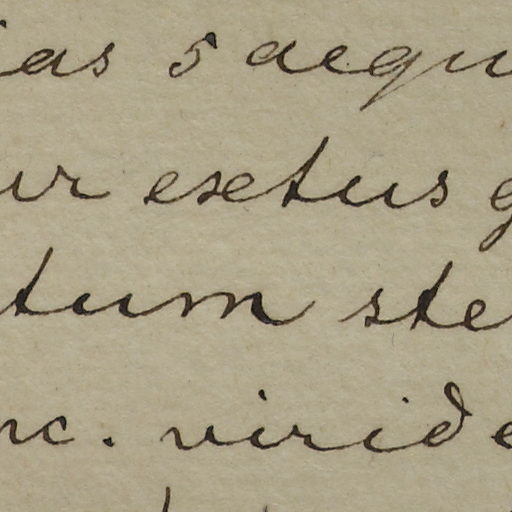 ias 5 aequ
ur extus g
tum ste
nc. viride